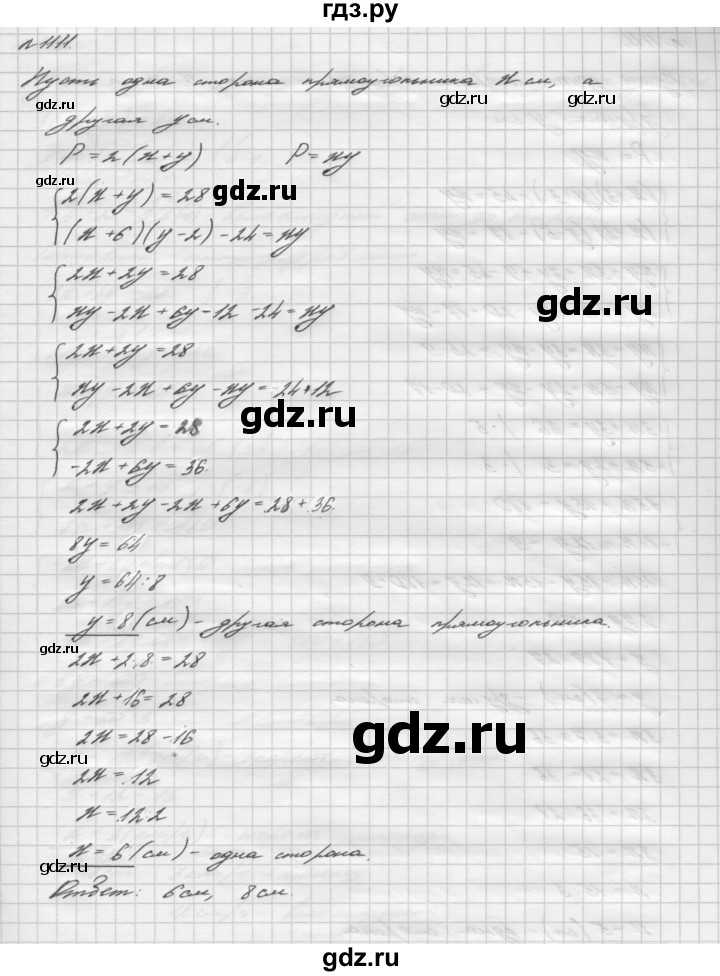 гдз.ру
№ 1111.
Пусть одна сторона прямоугольника x см, а
gdz.ru gdz.ru gdz.ru
другая y см.
P = 2(x+y) P = xy
gdz.ru
2(x+y) = 28
gdz.ru
(x+6)(y-2) - 24 = xy
2x + 2y = 28
gdz.ru
xy - 2x + 6y - 12 - 24 = xy
2x + 2y = 28
xy - 2x + 6y - xy = 24 + 12
gdz.ru
2x + 2y = 28
-2x + 6y = 36.
2x + 2y - 2x + 6y = 28 + 36.
8y = 64
y = 64 : 8
y = 8 (см) - другая сторона прямоугольника.
gdz.ru
2x + 2·8 = 28
2x + 16 = 28
gdz.ru
2x = 28 - 16
gdz.ru
2x = 12
x = 12:2
x = 6 (см) - одна сторона.
gdz.ru
Ответ: 6 см, 8 см.
gdz.ru